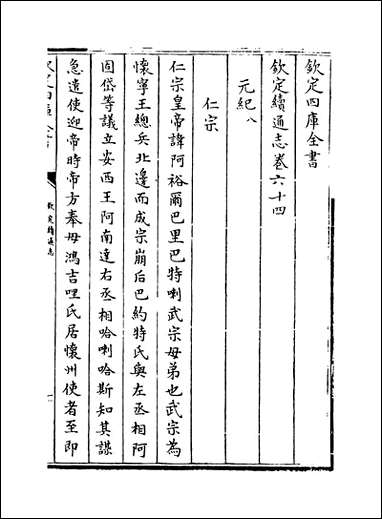 欽定四庫全書
欽定續通志卷六十四
元紀八
仁宗
仁宗皇帝諱阿裕爾巴里巴特喇武宗母弟也武宗為
懷寧王總兵北邊而成宗崩后巴約特氏與左丞相阿
固岱等議立安西王阿南達右丞相哈喇哈斯知其謀
急遣使迎帝時帝方奉母鴻吉哩氏居懷州使者至即
欽定續通志